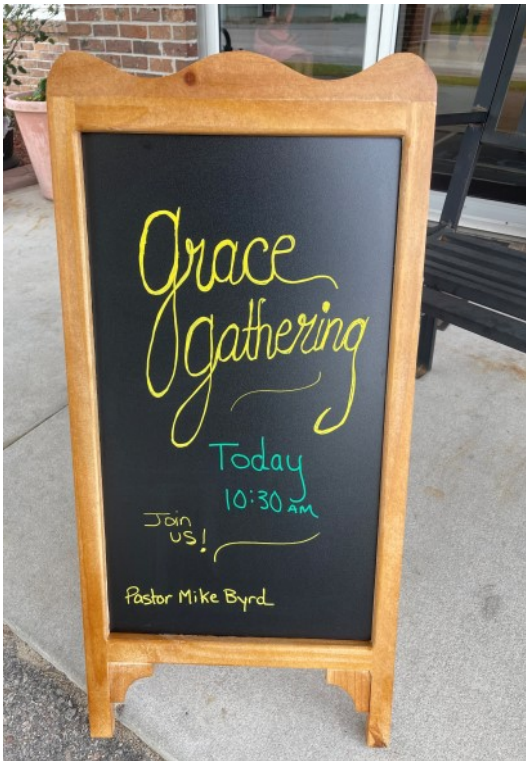 Grace
gathering
Today
10:30 AM
Join
us!
Pastor Mike Byrd